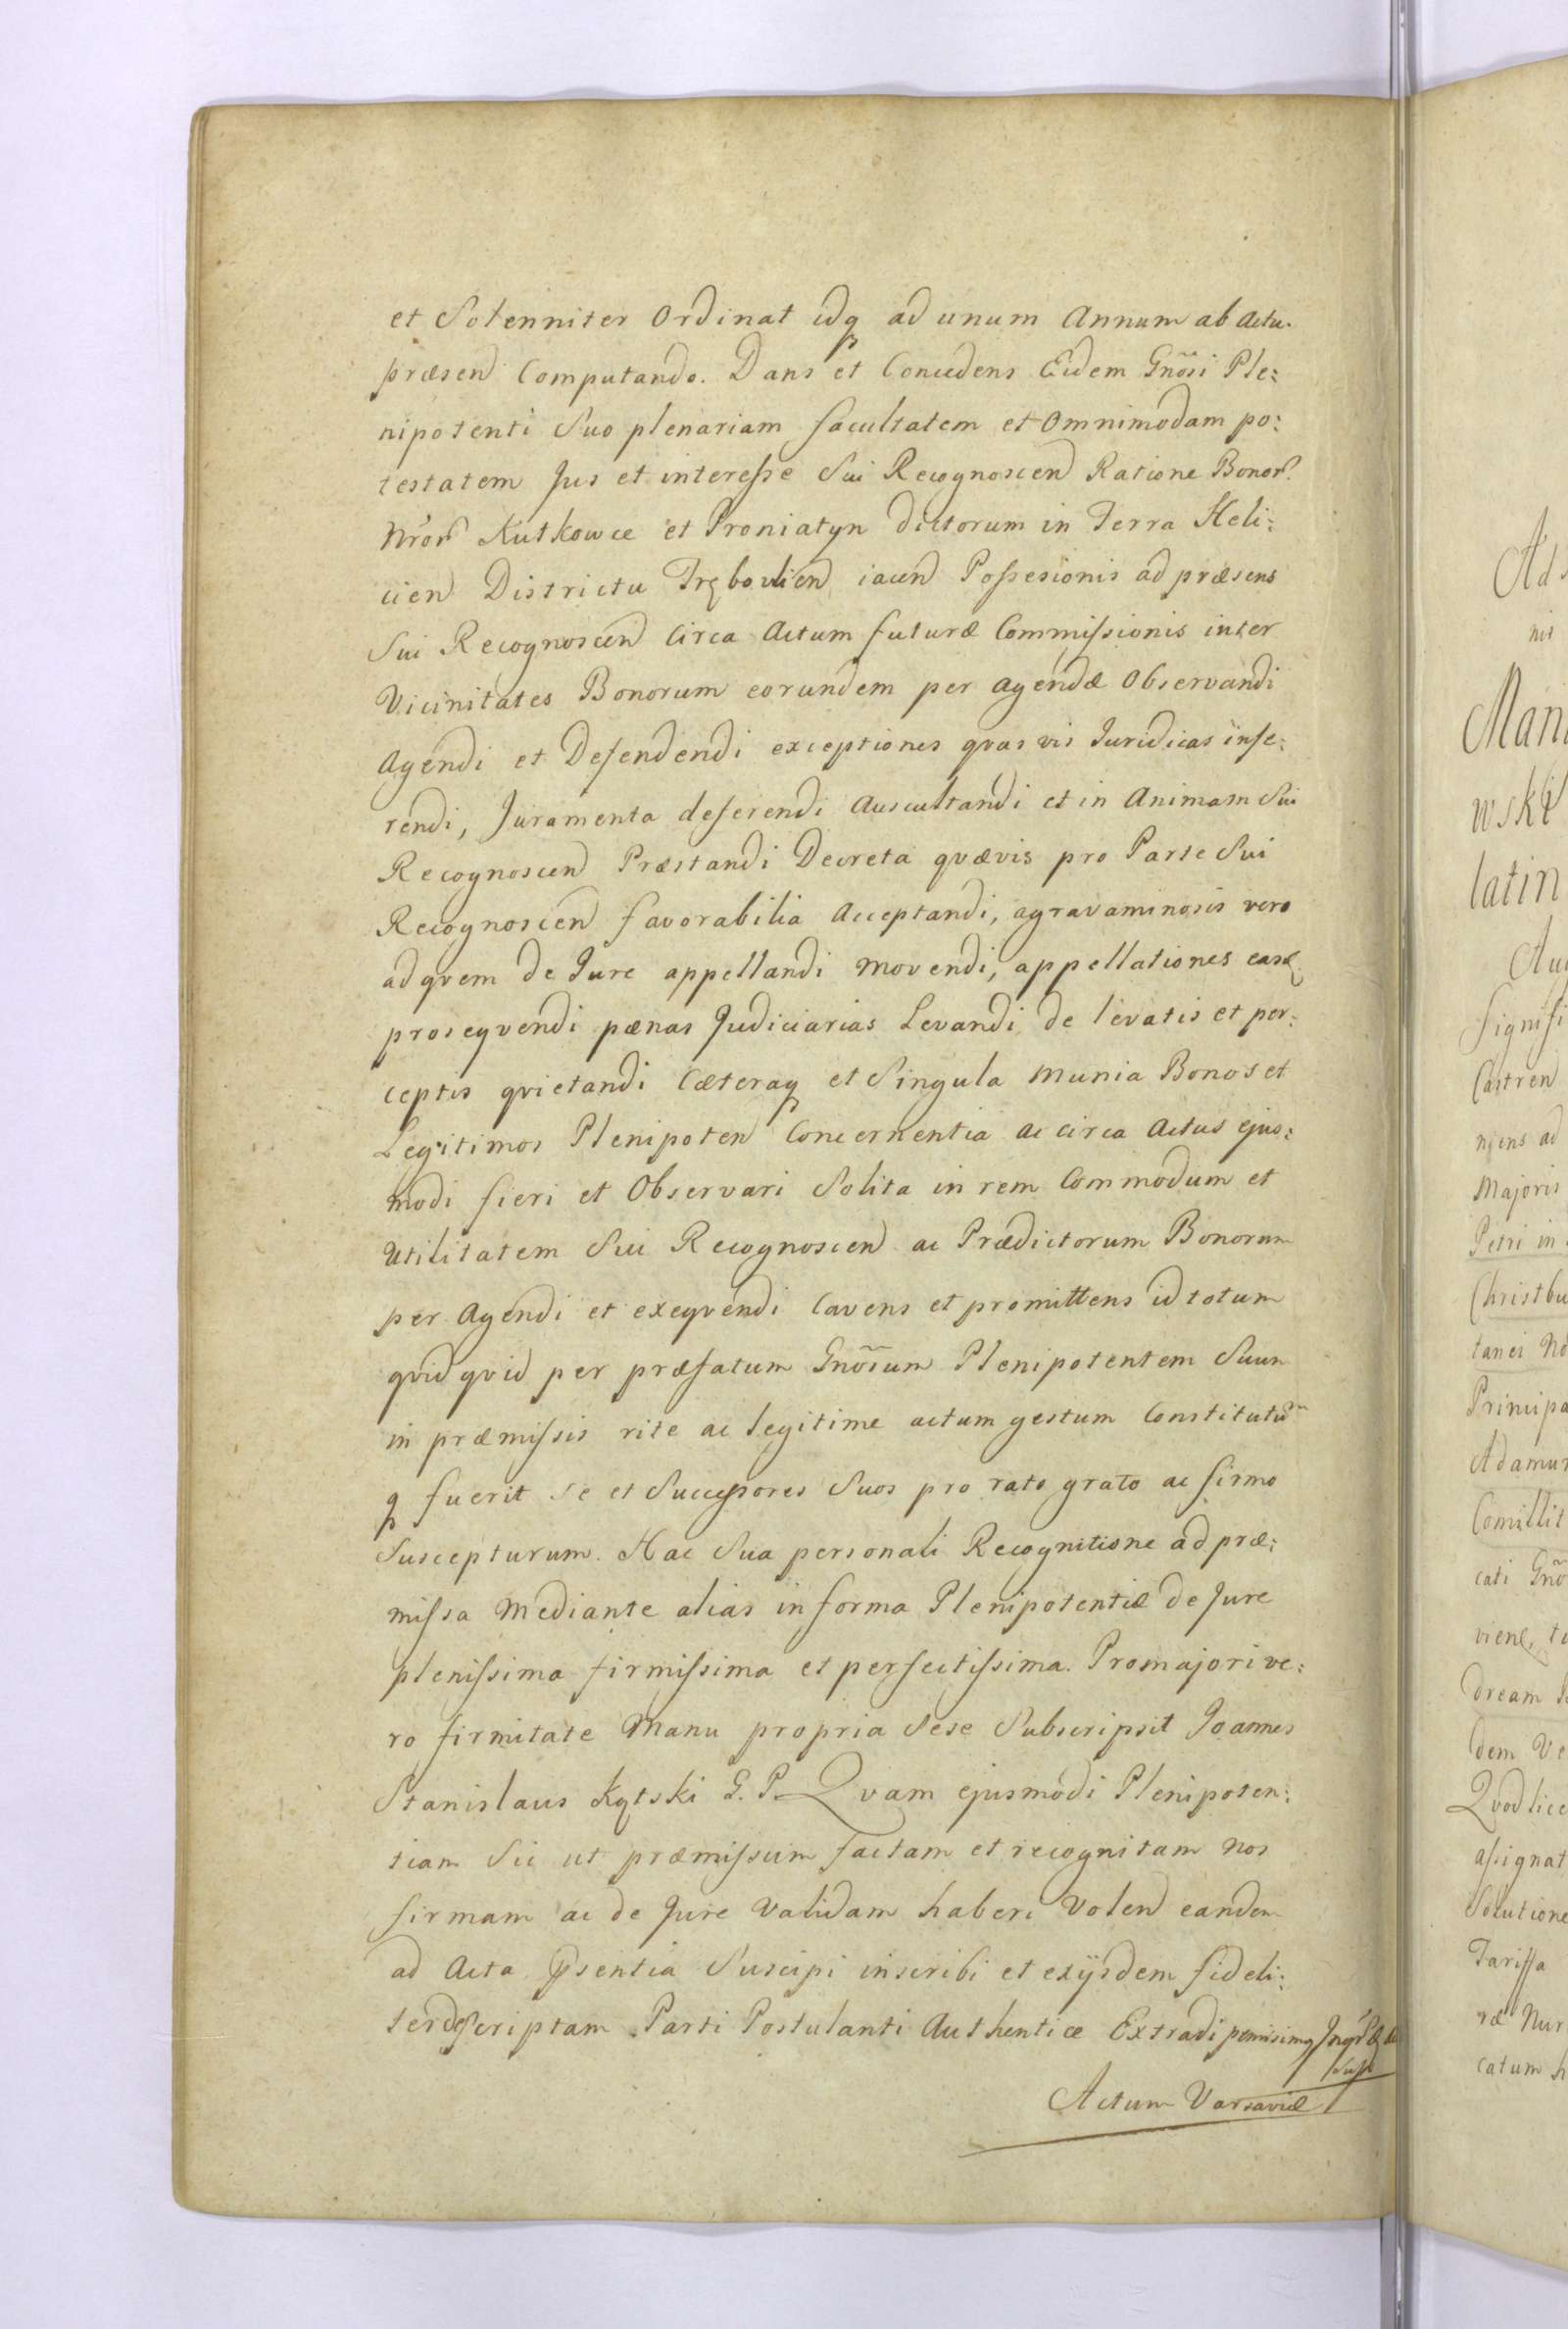 et Solenniter Ordinat idq ad unum Annum ab Actu
præsen Computando. Dans et Concedens Eidem Gnosi Ple:
nipotenti Suo plenariam facultatem et Omnimodam po:
testatem Jus et interesse Sui Recognoscen Ratione Bonor
Nror Kutkowce et Proniatyn dictorum in Terra Heli:
cien Districtu Tręboulien iacen Possesionis ad præsens
Sui Recognoscen Circa Actum futuræ Commissionis inter
Vicinitates Bonorum eorundem per agendæ Observandi
Agendi et Defendendi exceptiones quas vis Juridicas infe:
rendi, Juramenta deferendi Auscultandi et in Animam Sui
Recognoscen Præstandi Decreta quævis pro Parte Sui
Recognoscen favorabilia Acceptandi, agravaminosis vero
ad quem de Jure appellandi movendi, appellationes easq
prosequendi pænas Judiciarias Levandi de levatis et per:
ceptis quietandi Cæteraq et Singula Munia Bonos et
Legitimos Plenipoten Concernentia ac circa Actus ejus:
modi fieri et Observari Solita in rem Commodum et
Utilitatem Sui Recognoscen ac Prædictorum Bonorum
per Agendi et exequendi Cavens et promittens id totum
quid quid per præfatum Gnosum Plenipotentem Suum
in præmissis rite ac legitime actum gestum Constitutu
q fuerit se et Successores Suos pro rato grato ac firmo
Suscepturum. Hac Sua personali Recognitione ad præ:
missa Mediante alias in forma Plenipotentiæ de Jure
plenissima firmissima et perfectissima. Pro majori ve:
ro firmitate Manu propria Sese Subscripsit Joannes
Stanislaus Kątski G. P. Quam ejusmodi Plenipoten:
tiam Sic ut præmissum factam et recognitam nos
firmam ac de Jure Validam haberi Volen eandem
ad Acta Psentia Suscipi inscribi et exijsdem fideli:
ter descriptam Parti Postulanti Authentice Extradi permisimq
Actum Varsaviæ
Ad
Mani
wski
latin
Signifi
Castren
Majoris
Petri in
Christbu
tanei No
Principa
Adamum
cati Gno
dream
dem Ve
Quod lice
assignat
Solutione
Tariffa
ræ Nur
catum h